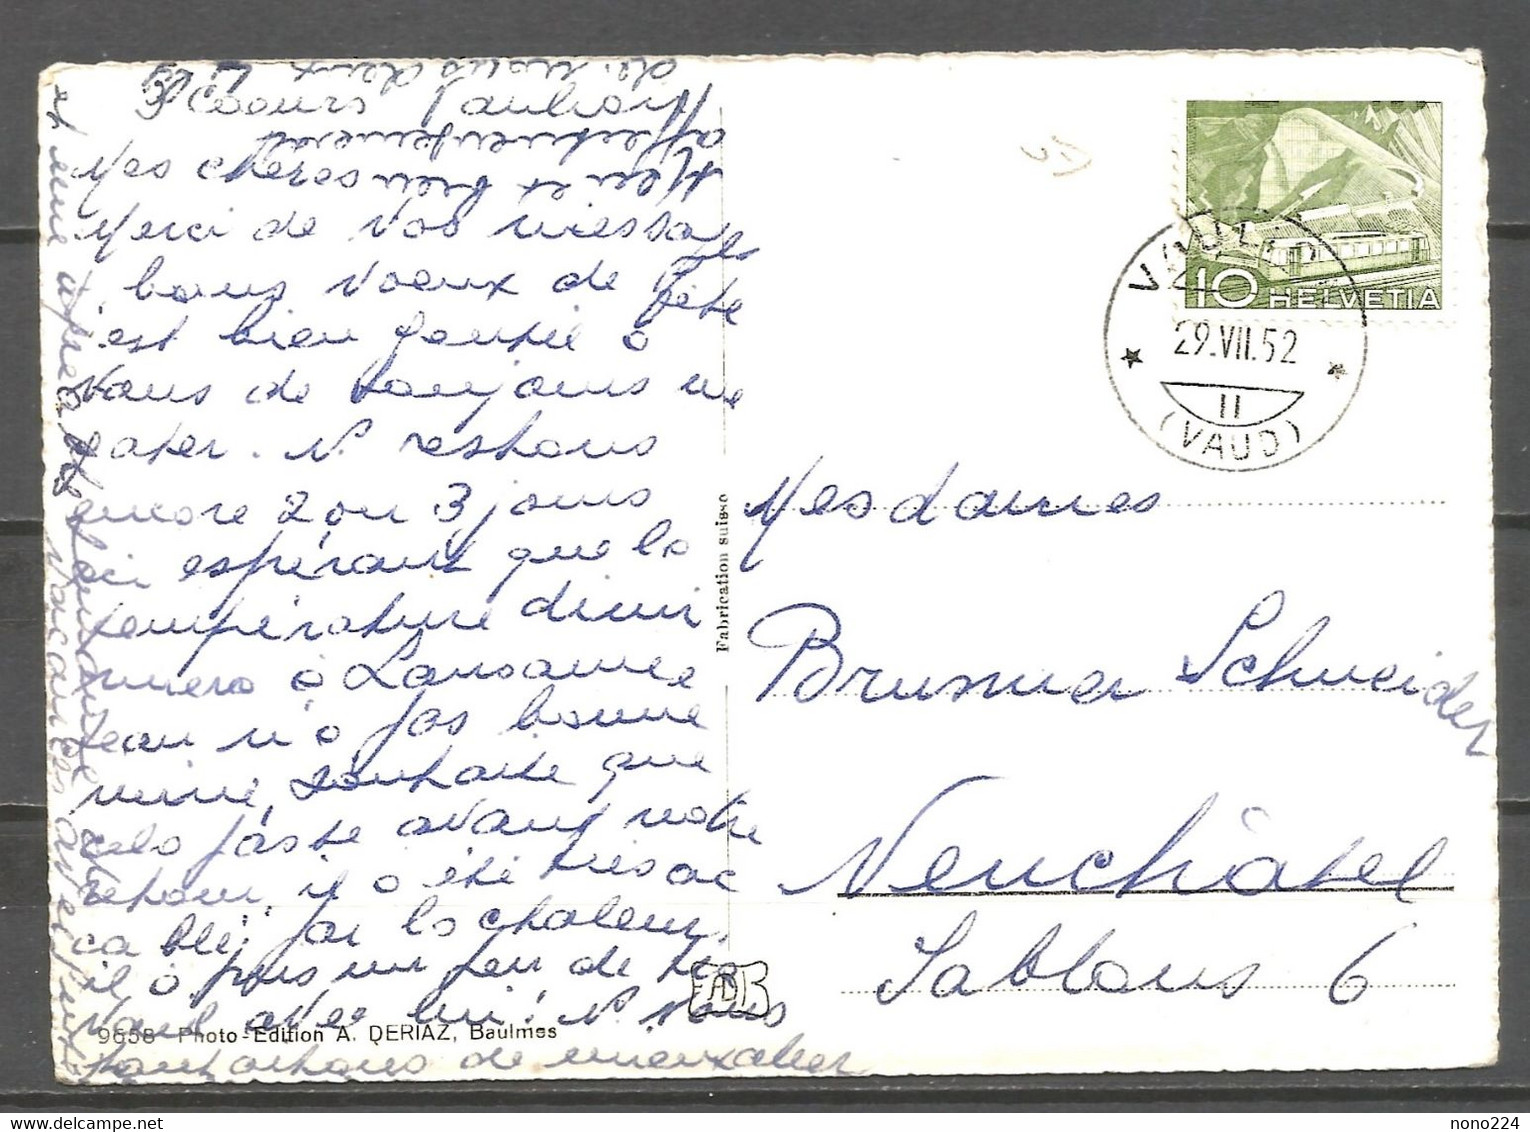 Mes chères
Merci de vos messages
bons voeux de fête
c'est bien gentil à
vous de toujours me
gater. N. restons
encore 2 ou 3 jours
ici espérant que la
température diminuera à Lausanne
Jean n'a pas bonne
mine, souhaite que
cela passe avant notre
retour, il a été très ac
cablé par la chaleur,
il a pris un peu de
avec lui! N. vous
de
et
après
vacances
affectueusement
de nous deux
VAULION
29.VII.52
(VAUD)
10 HELVETIA
Mesdames
Brunner Schneider
Neuchâtel
Sablons 6
Fabrication suisse
9658 Photo-Edition A. DERIAZ, Baulmes
nono224